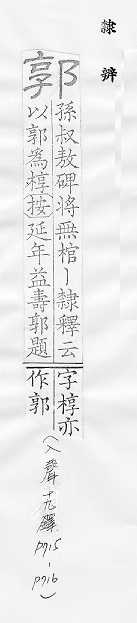 隸辨
郭
孫叔敖碑將無棺丨隸釋云
以郭為椁按延年益壽郭題
字椁亦
作郭
(入聲十九鐸 p715-p716)